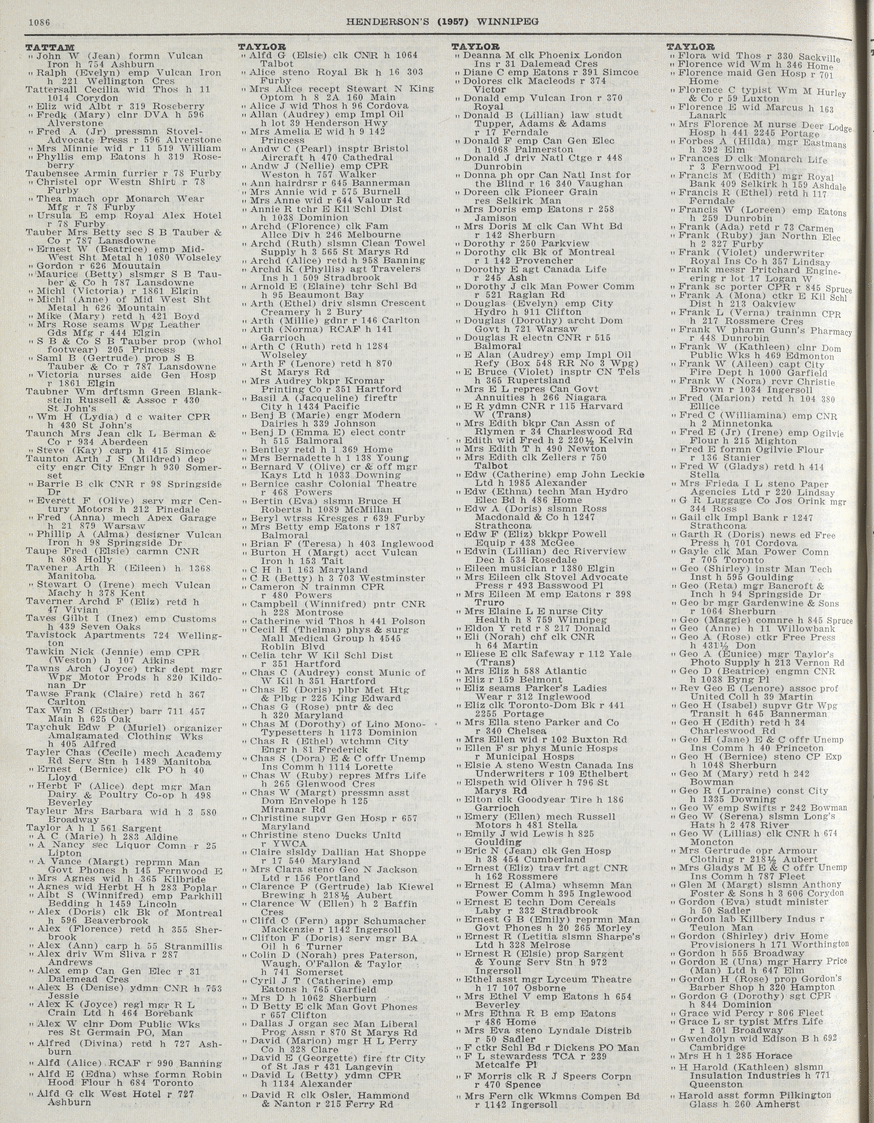 1086
HENDERSON'S (1957) WINNIPEG
TATTAM
" John W (Jean) formn Vulcan
Iron h 754 Ashburn
" Ralph (Evelyn) emp Vulcan Iron
h 221 Wellington Cres
Tattersall Cecilia wid Thos h 11
1014 Corydon
" Eliz wid Albt r 319 Roseberry
" Fredk (Mary) clnr DVA h 596
Alverstone
" Fred A (Jr) pressmn Stovel-
Advocate Press r 596 Alverstone
" Mrs Minnie wid r 11 519 William
" Phyllis emp Eatons h 319 Rose-
berry
Taubensee Armin furrier r 78 Furby
" Christel opr Westn Shirt r 78
Furby
" Thea mach opr Monarch Wear
Mfg r 78 Furby
" Ursula E emp Royal Alex Hotel
r 78 Furby
Tauber Mrs Betty sec S B Tauber &
Co r 787 Lansdowne
" Ernest W (Beatrice) emp Mid-
West Sht Metal h 1080 Wolseley
" Gordon r 626 Moutain
" Maurice (Betty) slsmgr S B Tau-
ber & Co h 787 Lansdowne
" Michl (Victoria) r 1861 Elgin
" Michl (Anne) of Mid West Sht
Metal h 626 Mountain
" Mike (Mary) retd h 421 Boyd
" Mrs Rose seams Wpg Leather
Gds Mfg r 444 Elgin
" S B & Co S B Tauber prop (whol
footwear) 205 Princess
" Saml B (Gertrude) prop S B
Tauber & Co r 787 Lansdowne
" Victoria nurses aide Gen Hosp
r 1861 Elgin
Taubner Wm drftsmn Green Blank-
stein Russell & Assoc r 430
St John's
" Wm H (Lydia) d c waiter CPR
h 430 St John's
Taunch Mrs Jean clk L Berman &
Co r 934 Aberdeen
" Steve (Kay) carp h 415 Simcoe
Taunton Arth J S (Mildred) dep
city engr City Engr h 930 Somer-
set
" Barrie B clk CNR r 98 Springside
Dr
" Everett F (Olive) serv mgr Cen-
tury Motors h 212 Pinedale
" Fred (Anna) mech Apex Garage
h 21 879 Warsaw
" Phillip A (Alma) designer Vulcan
Iron h 98 Springside Dr
Taupe Fred (Elsie) carmn CNR
h 808 Holly
Tavener Arth R (Eileen) h 1368
Manitoba
" Stewart O (Irene) mech Vulcan
Machy h 378 Kent
Taverner Archd F (Eliz) retd h
47 Vivian
Taves Gilbt I (Inez) emp Customs
h 439 Seven Oaks
Tavistock Apartments 724 Welling-
ton
Tawkin Nick (Jennie) emp CPR
(Weston) h 107 Aikins
Tawns Arch (Joyce) trkr dept mgr
Wpg Motor Prods h 820 Kildo-
nan Dr
Tawse Frank (Claire) retd h 367
Carlton
Tax Wm S (Esther) barr 711 457
Main h 625 Oak
Taychuk Edw P (Muriel) organizer
Amalgamated Clothing Wkrs
h 405 Alfred
Tayler Chas (Cecile) mech Academy
Rd Serv Stn h 1489 Manitoba
" Ernest (Bernice) clk PO h 40
Lloyd
" Herbt F (Alice) dept mgr Man
Dairy & Poultry Co-op h 498
Beverley
Tayleur Mrs Barbara wid h 3 580
Broadway
Taylor A h 1 561 Sargent
" A C (Marie) h 283 Aldine
" A Nancy sec Liquor Comn r 25
Lipton
" A Vance (Margt) reprmn Man
Govt Phones h 145 Fernwood E
" Mrs Agnes wid h 365 Kilbride
" Agnes wid Herbt H h 283 Poplar
" Albt S (Winnifred) emp Parkhill
Bedding h 1459 Lincoln
" Alex (Doris) clk Bk of Montreal
h 596 Beaverbrook
" Alex (Florence) retd h 355 Sher-
brook
" Alex (Ann) carp h 55 Stranmillis
" Alex driv Wm Sliva r 287
Andrews
" Alex emp Can Gen Elec r 31
Dalemead Cres
" Alex B (Denise) ydmn CNR h 753
Jessie
" Alex K (Joyce) regl mgr R L
Crain Ltd h 464 Borebank
" Alex W clnr Dom Public Wks
res St Germain PO, Man
" Alfred (Divina) retd h 727 Ash-
burn
" Alfd (Alice) RCAF r 990 Banning
" Alfd E (Edna) whse formn Robin
Hood Flour h 684 Toronto
" Alfd G clk West Hotel r 727
Ashburn
TAYLOR
" Alfd G (Elsie) clk CNR h 1064
Talbot
" Alice steno Royal Bk h 16 303
Furby
" Mrs Alice recept Stewart N King
Optom h 8 2A 160 Main
" Alice J wid Thos h 96 Cordova
" Allan (Audrey) emp Impl Oil
h lot 39 Henderson Hwy
" Mrs Amelia E wid h 9 142
Princess
" Andw C (Pearl) insptr Bristol
Aircraft h 470 Cathedral
" Andw J (Nellie) emp CPR
Weston h 757 Walker
" Ann hairdrsr r 645 Bannerman
" Mrs Annie wid r 575 Burnell
" Mrs Anne wid r 644 Valour Rd
" Annie R tchr E Kil Schl Dist
h 1038 Dominion
" Archd (Florence) clk Fam
Alice Div h 246 Melbourne
" Archd (Ruth) slsmn Clean Towel
Supply h 3 565 St Marys Rd
" Archd (Alice) retd h 958 Banning
" Archd K (Phyllis) agt Travelers
Ins h 1 509 Stradbrook
" Arnold E (Elaine) tchr Schl Bd
h 95 Beaumont Bay
" Arth (Ethel) driv slsmn Crescent
Creamery h 2 Bury
" Arth (Millie) gdnr r 146 Carlton
" Arth (Norma) RCAF h 141
Garrioch
" Arth C (Ruth) retd h 1284
Wolseley
" Arth P (Lenore) retd h 870
St Marys Rd
" Mrs Audrey bkpr Kromar
Printing Co r 351 Hartford
" Basil A (Jacqueline) fireftr
City h 1434 Pacific
" Benj B (Marie) engr Modern
Dairies h 339 Johnson
" Benj D (Emma E) elect contr
h 515 Balmoral
" Bentley retd h 1 369 Home
" Mrs Bernadette h 1 138 Young
" Bernard V (Olive) cr & off mgr
Kays Ltd h 1033 Downing
" Bernice cashr Colonial Theatre
r 468 Powers
" Bertin (Eva) slsmn Bruce H
Roberts h 1089 McMillan
" Beryl wtrss Kresges r 639 Furby
" Mrs Betty emp Eatons r 187
Balmoral
" Brian F (Teresa) h 403 Inglewood
" Burton H (Margt) acct Vulcan
Iron h 153 Tait
" C H h 1 163 Maryland
" C R (Betty) h 3 703 Westminster
" Cameron N trainmn CPR
r 480 Powers
" Campbell (Winnifred) pntr CNR
h 228 Montrose
" Catherine wid Thos h 441 Polson
" Cecil H (Thelma) phys & surg
Mall Medical Group h 4545
Roblin Blvd
" Celia tchr W Kil Schl Dist
r 351 Hartford
" Chas C (Audrey) const Munic of
W Kil h 351 Hartford
" Chas E (Doris) plbr Met Htg
& Plbg r 225 King Edward
" Chas G (Rose) pntr & dec
h 320 Maryland
" Chas M (Dorothy) of Lino Mono-
Typesetters h 1173 Dominion
" Chas R (Ethel) wtchmn City
Engr h 81 Frederick
" Chas S (Dora) E & C offr Unemp
Ins Comm h 1114 Lorette
" Chas W (Ruby) repres Mfrs Life
h 265 Glenwood Cres
" Chas W (Margt) pressmn asst
Dom Envelope h 125
Miramar Rd
" Christine supvr Gen Hosp r 657
Maryland
" Christine steno Ducks Unltd
r YWCA
" Claire slsldy Dallian Hat Shoppe
r 17 540 Maryland
" Mrs Clara steno Geo N Jackson
Ltd r 156 Portland
" Clarence P (Gertrude) lab Kiewel
Brewing h 218½ Aubert
" Clarence W (Ellen) h 2 Baffin
Cres
" Cliffd C (Fern) appr Schumacher
Mackenzie r 1142 Ingersoll
" Clifton F (Doris) serv mgr BA
Oil h 6 Turner
" Colin D (Norah) pres Paterson,
Waugh, O'Fallon & Taylor
h 741 Somerset
" Cyril J T (Catherine) emp
Eatons h 765 Garfield
" Mrs D h 1062 Sherburn
" D Betty E clk Man Govt Phones
r 657 Clifton
" Dallas J organ sec Man Liberal
Prog Assn r 870 St Marys Rd
" David (Marion) mgr H L Perry
Co h 328 Clare
" David E (Georgette) fire ftr City
of St Jas r 431 Langevin
" David L (Betty) ydmn CPR
h 1134 Alexander
" David R clk Osler, Hammond
& Nanton r 215 Ferry Rd
TAYLOR
" Deanna M clk Phoenix London
Ins r 31 Dalemead Cres
" Diane C emp Eatons r 391 Simcoe
" Dolores clk Macleods r 374
Victor
" Donald emp Vulcan Iron r 370
Royal
" Donald B (Lillian) law studt
Tupper, Adams & Adams
r 17 Ferndale
" Donald F emp Can Gen Elec
h 1068 Palmerston
" Donald J driv Natl Ctge r 448
Dunrobin
" Donna ph opr Can Natl Inst for
the Blind r 16 340 Vaughan
" Doreen clk Pioneer Grain
res Selkirk Man
" Mrs Doris emp Eatons r 258
Jamison
" Mrs Doris M clk Can Wht Bd
r 142 Sherburn
" Dorothy r 250 Parkview
" Dorothy clk Bk of Montreal
r 1 142 Provencher
" Dorothy E agt Canada Life
r 245 Ash
" Dorothy J clk Man Power Comm
r 521 Raglan Rd
" Douglas (Evelyn) emp City
Hydro h 911 Clifton
" Douglas (Dorothy) archt Dom
Govt h 721 Warsaw
" Douglas R electn CNR r 515
Balmoral
" E Alan (Audrey) emp Impl Oil
Refy (Box 548 RR No 3 Wpg)
" E Bruce (Violet) insptr CN Tels
h 365 Rupertsland
" Mrs E L repres Can Govt
Annuities h 266 Niagara
" E R ydmn CNR r 115 Harvard
W (Trans)
" Mrs Edith bkpr Can Assn of
Rlymen r 34 Charleswood Rd
" Edith wid Fred h 2 220½ Kelvin
" Mrs Edith T h 490 Newton
" Mrs Edith clk Zellers r 750
Talbot
" Edw (Catherine) emp John Leckie
Ltd h 1985 Alexander
" Edw (Ethna) techn Man Hydro
Elec Bd h 486 Home
" Edw A (Doris) slsmn Ross
Macdonald & Co h 1247
Strathcona
" Edw F (Eliz) bkkpr Powell
Equip r 438 McGee
" Edwin (Lillian) dec Riverview
Dec h 534 Rosedale
" Eileen musician r 1380 Elgin
" Mrs Eileen clk Stovel Advocate
Press r 493 Basswood Pl
" Mrs Eileen M emp Eatons r 398
Truro
" Mrs Elaine L E nurse City
Health h 8 759 Winnipeg
" Eldon Y retd r 8 217 Donald
" Eli (Norah) chf clk CNR
h 64 Martin
" Eliese E clk Safeway r 112 Yale
(Trans)
" Mrs Eliz h 588 Atlantic
" Eliz r 159 Belmont
" Eliz seams Parker's Ladies
Wear r 312 Inglewood
" Eliz clk Toronto-Dom Bk r 441
2255 Portage
" Mrs Ella steno Parker and Co
r 340 Chelsea
" Mrs Ellen wid r 102 Buxton Rd
" Ellen F sr phys Munic Hosps
r Municipal Hosps
" Elsie A steno Westn Canada Ins
Underwriters r 109 Ethelbert
" Elspeth wid Oliver h 796 St
Marys Rd
" Elton clk Goodyear Tire h 186
Garrioch
" Emery (Ellen) mech Russell
Motors h 481 Stella
" Emily J wid Lewis h 825
Goulding
" Eric N (Jean) clk Gen Hosp
h 38 454 Cumberland
" Ernest (Eliz) trav frt agt CNR
h 162 Rossmere
" Ernest E (Alma) whsemn Man
Power Comm h 395 Inglewood
" Ernest E techn Dom Cereals
Laby r 332 Stradbrook
" Ernest G B (Emily) reprmn Man
Govt Phones h 20 265 Morley
" Ernest R (Letitia slsmn Sharpe's
Ltd h 328 Melrose
" Ernest R (Elsie) prop Sargent
& Young Serv Stn h 972
Ingersoll
" Ethel asst mgr Lyceum Theatre
h 17 107 Osborne
" Mrs Ethel V emp Eatons h 654
Beverley
" Mrs Ethna R B emp Eatons
r 486 Home
" Mrs Eva steno Lyndale Distrib
r 50 Sadler
" F ctkr Schl Bd r Dickens PO Man
" F L stewardess TCA r 239
Metcalfe Pl
" F Morris clk R J Speers Corpn
r 470 Spence
" Mrs Fern clk Wkmns Compen Bd
r 1142 Ingersoll
TAYLOR
" Flora wid Thos r 330 Sackville
" Florence wid Wm h 346 Home
" Florence maid Gen Hosp r 701
Home
" Florence C typist Wm M Hurley
& Co r 59 Luxton
" Florence E wid Marcus h 163
Lanark
" Mrs Florence M nurse Deer Lodge
Hosp h 441 2245 Portage
" Forbes A (Hilda) mgr Eastmans
h 392 Elm
" Frances D clk Monarch Life
r 3 Fernwood Pl
" Francis M (Edith) mgr Royal
Bank 409 Selkirk h 159 Ashdale
" Francis R (Ethel) retd h 117
Ferndale
" Francis W (Loreen) emp Eatons
h 259 Dunrobin
" Frank (Ada) retd r 73 Carmen
" Frank (Ruby) jan Northn Elec
h 2 327 Furby
" Frank (Violet) underwriter
Royal Ins Co h 357 Lindsay
" Frank messr Pritchard Engine-
ering r lot 17 Logan W
" Frank sc porter CPR r 845 Spruce
" Frank A (Mona) ctkr E Kil Schl
Dist h 213 Oakview
" Frank L (Verna) trainmn CPR
h 217 Rossmere Cres
" Frank W pharm Gunn's Pharmacy
r 448 Dunrobin
" Frank W (Kathleen) clnr Dom
Public Wks h 469 Edmonton
" Frank W (Aileen) capt City
Fire Dept h 1000 Garfield
" Frank W (Nora) rcvr Christie
Brown r 1034 Ingersoll
" Fred (Marion) retd h 104 380
Ellice
" Fred C (Williamina) emp CNR
h 2 Minnetonka
" Fred E (Jr) (Irene) emp Ogilvie
Flour h 215 Mighton
" Fred E formn Ogilvie Flour
r 136 Stanier
" Fred W (Gladys) retd h 414
Stella
" Mrs Frieda I L steno Paper
Agencies Ltd r 220 Lindsay
" G R Luggage Co Jos Orink mgr
344 Ross
" Gail clk Impl Bank r 1247
Strathcona
" Garth R (Doris) news ed Free
Press h 701 Cordova
" Gayle clk Man Power Comn
r 705 Toronto
" Geo (Shirley) instr Man Tech
Inst h 595 Goulding
" Geo (Reta) mgr Bancroft &
Inch h 94 Springside Dr
" Geo br mgr Gardenwine & Sons
r 1064 Sherburn
" Geo (Maggie) comnre h 845 Spruce
" Geo (Anne) h 11 Willowbank
" Geo A (Rose) ctkr Free Press
h 431½ Don
" Geo A (Eunice) mgr Taylor's
Photo Supply h 213 Vernon Rd
" Geo D (Beatrice) engmn CNR
h 1038 Byng Pl
" Rev Geo E (Lenore) assoc prof
United Coll h 39 Martin
" Geo H (Isabel) supvr Gtr Wpg
Transit h 645 Bannerman
" Geo H (Edith) retd h 34
Charleswood Rd
" Geo H (Jane) E & C offr Unemp
Ins Comm h 40 Princeton
" Geo H (Bernice) steno CP Exp
h 1048 Sherburn
" Geo M (Mary) retd h 242
Bowman
" Geo R (Lorraine) const City
h 1335 Downing
" Geo W emp Swifts r 242 Bowman
" Geo W (Serena) slsmn Long's
Hats h 2 478 River
" Geo W (Lillias) clk CNR h 674
Moncton
" Mrs Gertrude opr Armour
Clothing r 218½ Aubert
" Mrs Gladys M E & C offr Unemp
Ins Comm h 787 Fleet
" Glen M (Margt) slsmn Anthony
Foster & Sons h 3 606 Corydon
" Gordon (Eva) studt minister
h 50 Sadler
" Gordon lab Killbery Indus r
Teulon Man
" Gordon (Shirley) driv Home
Provisioners h 171 Worthington
" Gordon h 555 Broadway
" Gordon E (Una) mgr Harry Price
(Man) Ltd h 647 Elm
" Gordon H (Rose) prop Gordon's
Barber Shop h 320 Hampton
" Gordon G (Dorothy) sgt CPR
h 844 Dominion
" Grace wid Percy r 806 Fleet
" Grace L sr typist Mfrs Life
r 1 301 Broadway
" Gwendolyn wid Edison B h 692
Cambridge
" Mrs H h 1 285 Horace
" H Harold (Kathleen) slsmn
Insulation Industries h 771
Queenston
" Harold asst formn Pilkington
Glass h 260 Amherst